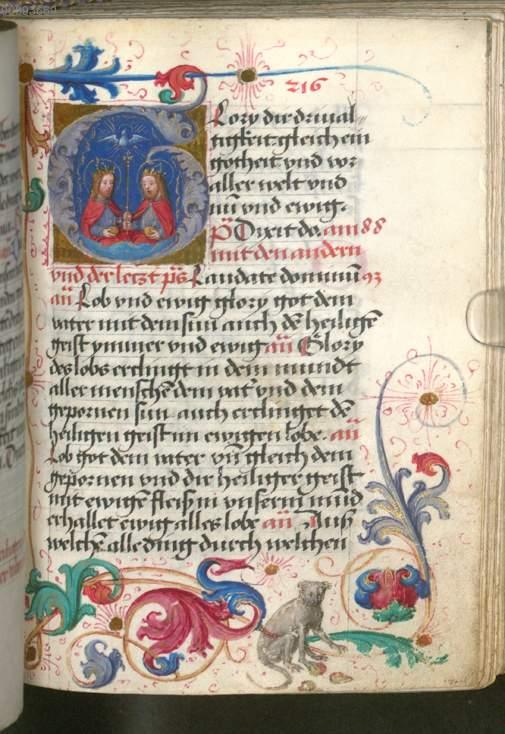 216
Glory dir driual-
tigkeit gleich ein
gotheit vnd vor
aller welt vnd
nu vnd ewig.
ps Dixit do. am 88
mit den andern
vnd der letzt ps Laudate dominum 93
an̄ Lob vnd ewig glory got dem
vater mit dem sun auch dē heiligē
geist ymmer vnd ewig an̄ Glory
des lobs erclingt in dem mundt
aller menschē dem vat' vnd dem
gepornen sun auch erclinget dē
heiligen geist im ewigen lobe. an̄
Lob got dem vater vn̄ gleich dem
gepornen vnd dir heiliger geist
mit ewigē fleiß in vnserm mund
erhallet ewig alles lobe an̄ Auß
welchē alle ding durch welchen